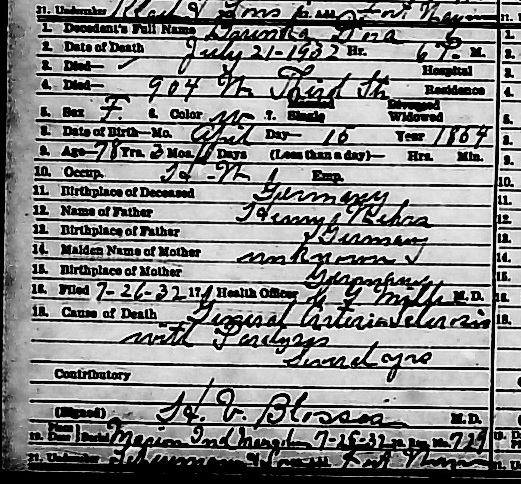 21. Undertaker & Sons Fort Wayne
1. Decedent's Full Name Dorinka
2. Date of Death July 21-1932 Hr. 6 P. M.
3. Died— Hospital
4. Died— 904 W. Third St Residence
5. Sex F. 6. Color w 7. Married Single Divorced Widowed
8. Date of Birth—Mo. April Day— 15 Year 1854
9. Age—78 Yrs. 3 Mos. Days (Less than a day)— Hrs. Min.
10. Occup. H. W. Emp.
11. Birthplace of Deceased Germany
12. Name of Father Henry Behrs
13. Birthplace of Father Germany
14. Maiden Name of Mother unknown
15. Birthplace of Mother Germany
16. Filed 7-26-32 17. Health Officer M. D.
18. Cause of Death General Arteriosclerosis
with Paralysis
Several yrs
Contributory
(Signed) H. V. Blosser M. D.
19. Place Date Burial Marion Ind 7-25-32 20. Bu. No. 729
21. Undertaker & Son Fort Wayne